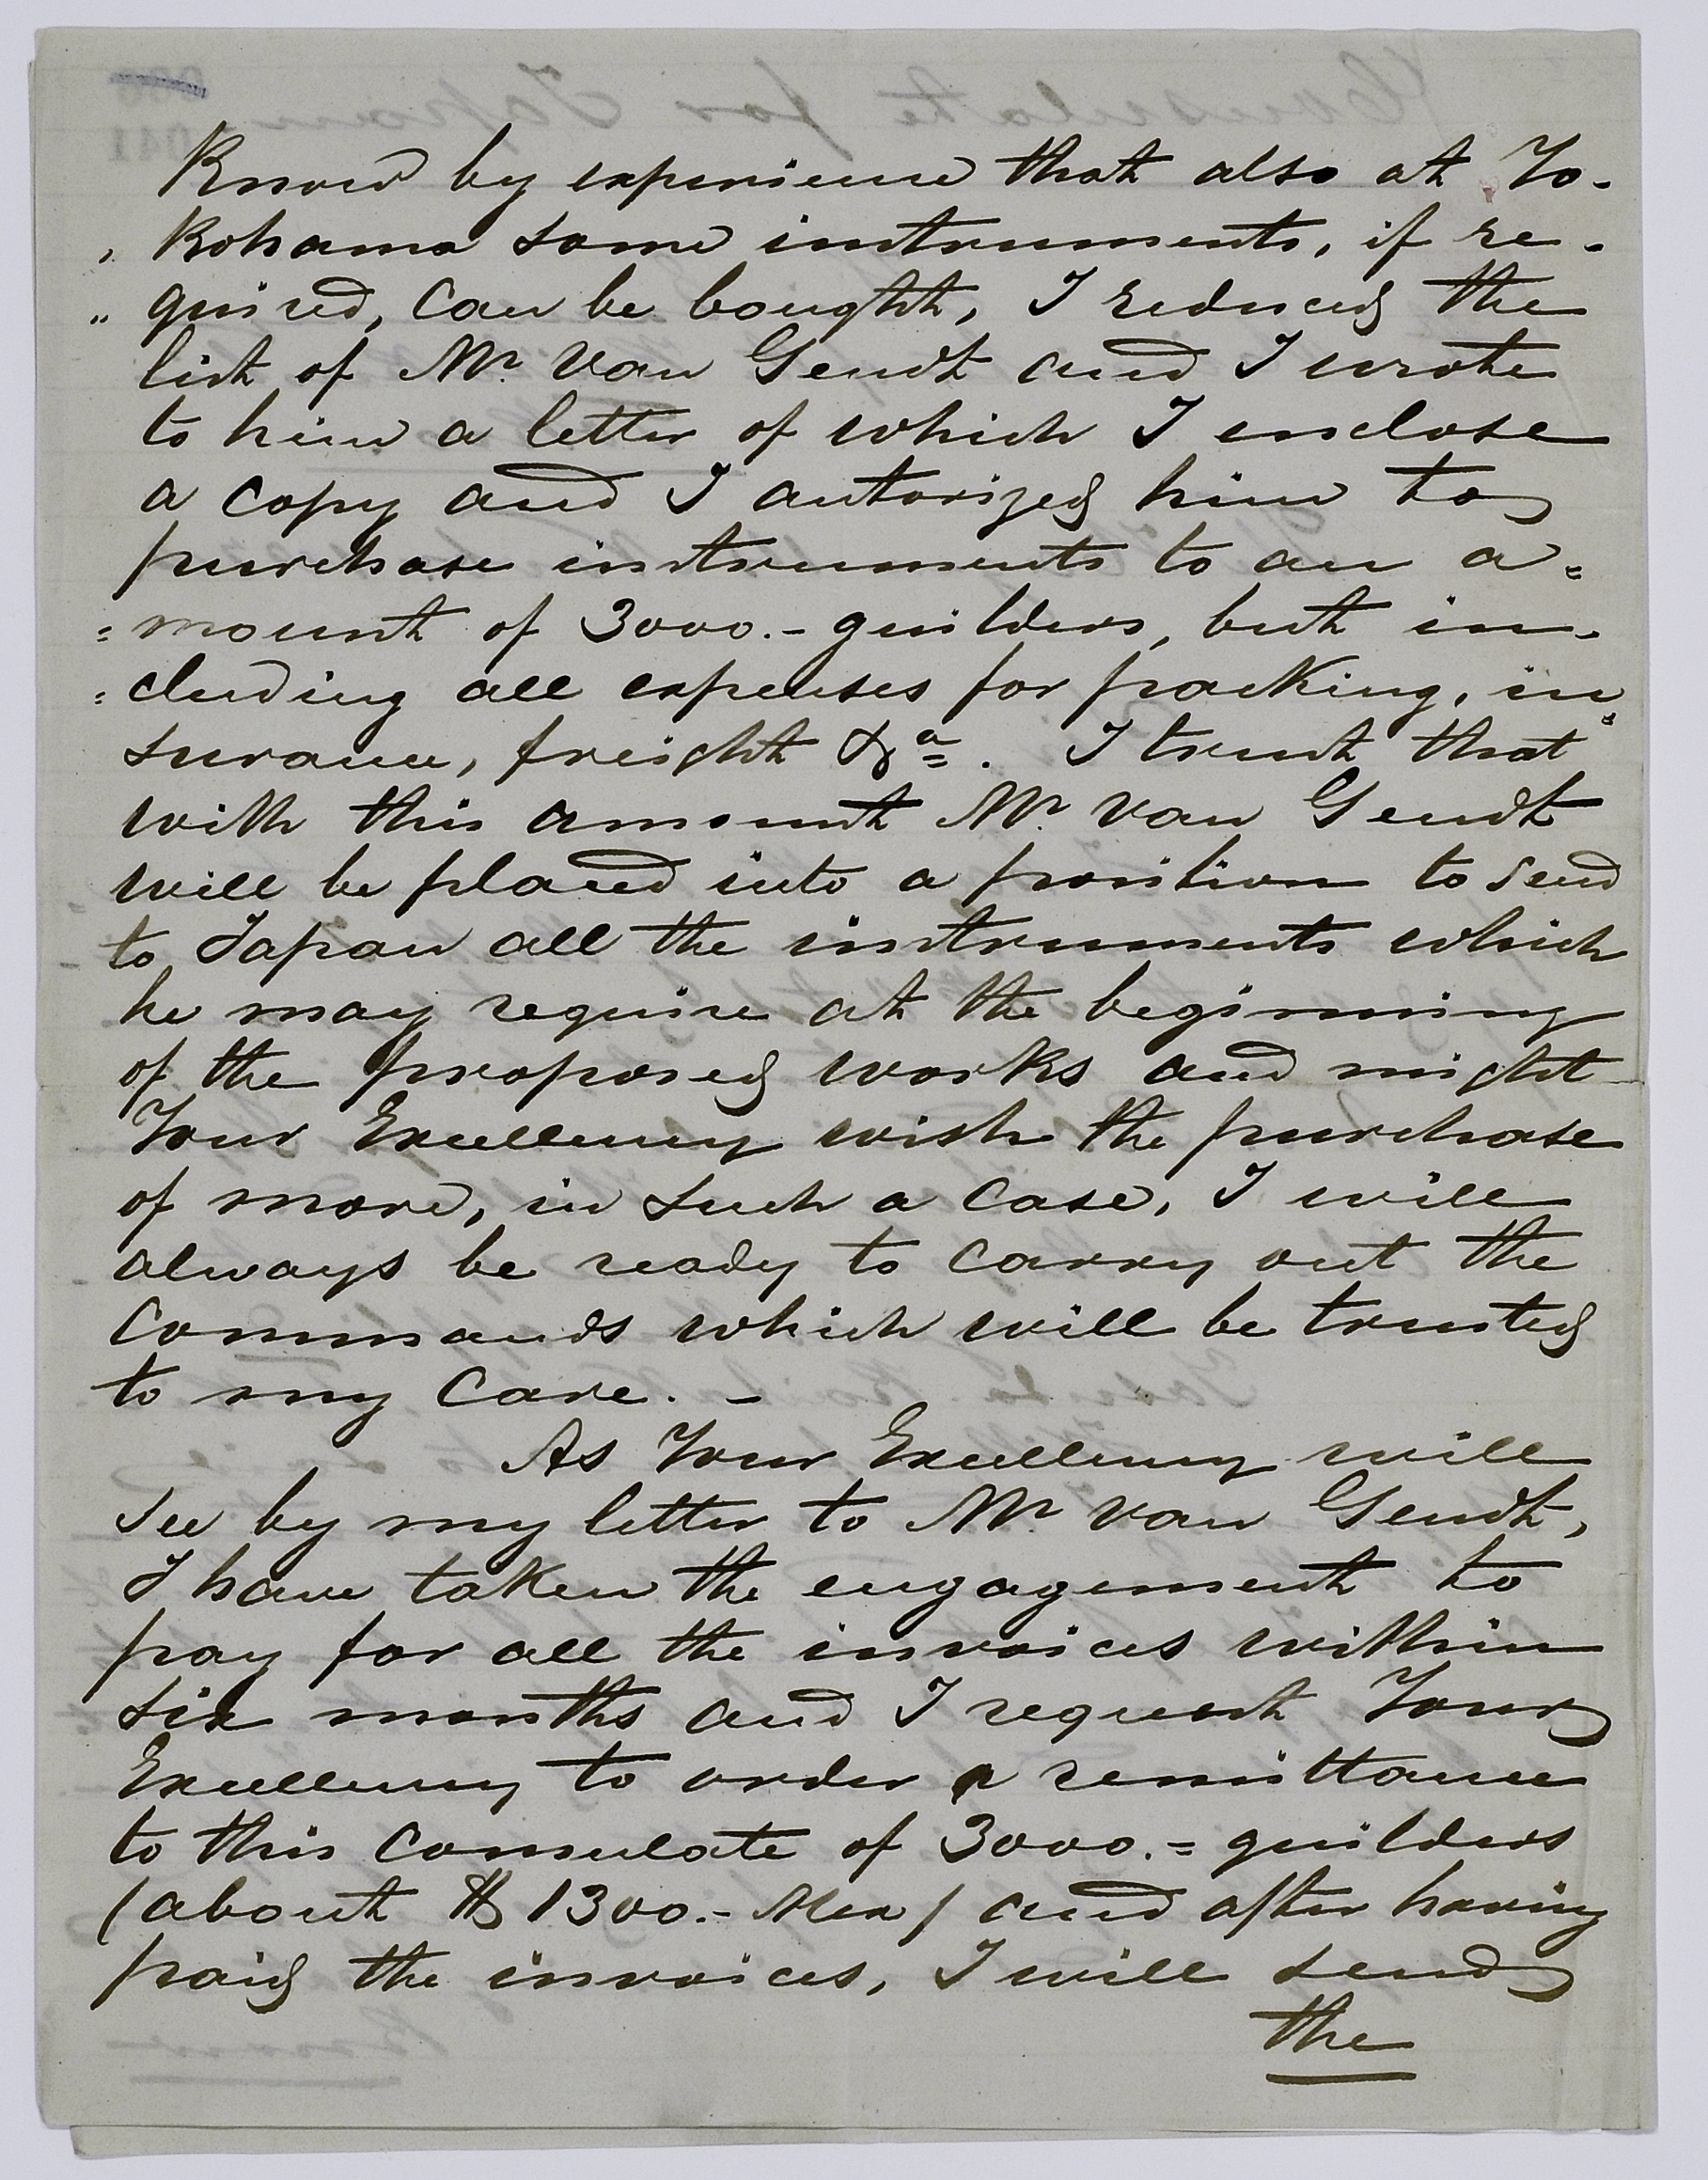 Know by experience that also at Yo-
, Kohama some instruments, if re-
„ quired, can be bought, I reduced the
list of Mr. Van Gendt and I wrote
to him a letter of which I enclose
a copy and I autorized him to
purchase instruments to an a=
=mount of 3000.- guilders, but in-
=cluding all expenses for packing, in=
surance, freight &a. I trust that
with this amount Mr. Van Gendt
will be placed into a position to send
to Japan all the instruments which
he may require at the beginning
of the proposed works and might
Your Excellency wish the purchase
of more, in such a case, I will
always be ready to carry out the
commands which will be trusted
to my care. -
As Your Excellency will
see by my letter to Mr. Van Gendt,
I have taken the engagement to
pay for all the invoices within
six months and I request Your
Excellency to order a remittance
to this Consulate of 3000.= guilders
(about $ 1300.- Mex) and after having
paid the invoices, I will send
the